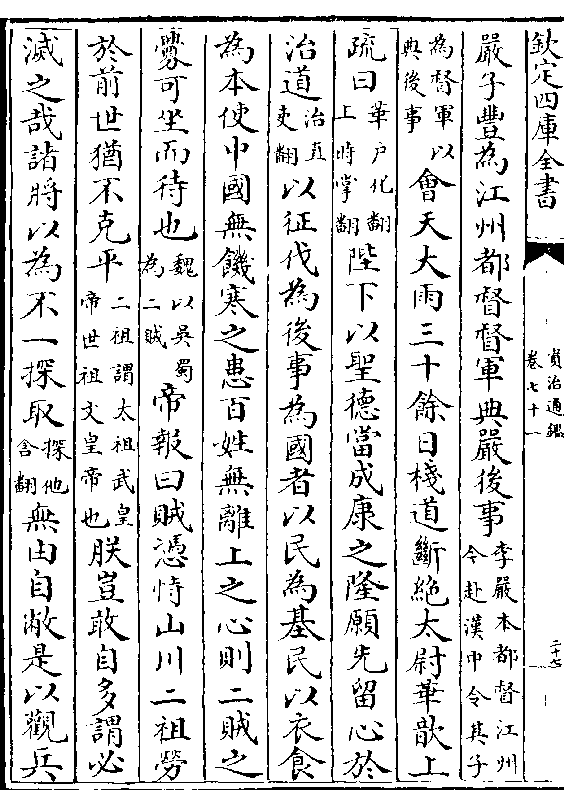 欽定四庫全書
資治通鑑
卷七十一
二十七
嚴子豐為江州都督督軍典嚴後事李嚴本都督江州今赴漢中令其子
為督軍以典後事會天大雨三十餘日棧道斷絶太尉華歆上
疏曰華户化翻上時掌翻陛下以聖德當成康之隆願先留心於
治道治直吏翻以征伐為後事為國者以民為基民以衣食
為本使中國無饑寒之患百姓無離上之心則二賊之
釁可坐而待也魏以吳蜀為二賊帝報曰賊憑恃山川二祖勞
於前世猶不克平二祖謂太祖武皇帝世祖文皇帝也朕豈敢自多謂必
滅之哉諸將以為不一探取探他含翻無由自敝是以觀兵